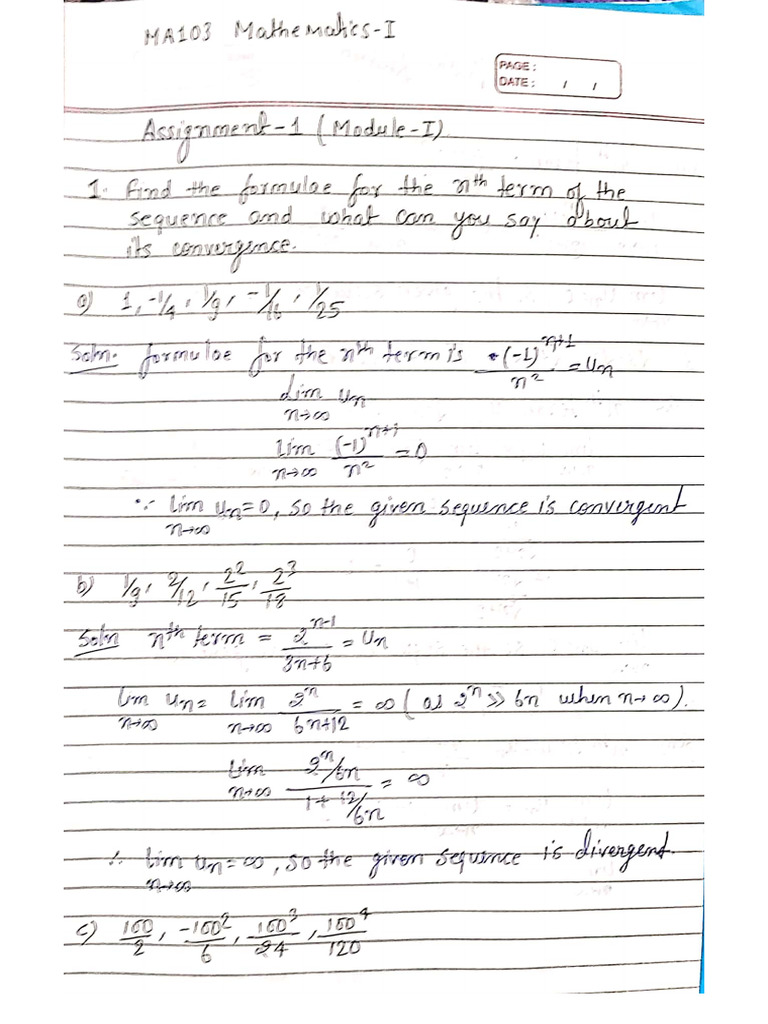 MA103 Mathematics-I
PAGE:
DATE: / /
Assignment-1 (Module-I)
1. Find the formulae for the nth term of the
sequence and what can you say about
its convergence.
a) 1, -1/4, 1/9, -1/16, 1/25
Soln. formulae for the nth term is (-1)^{n+1}/n² = Un
lim_{n→∞} Un
lim_{n→∞} (-1)^{n+1}/n² = 0
∵ lim_{n→∞} Un=0, so the given sequence is convergent
b) 1/9, 2/12, 2²/15, 2³/18
Soln nth term = 2^{n-1}/(3n+6) = Un
lim_{n→∞} Un = lim_{n→∞} 2^n/(6n+12) = ∞ (as 2^n >> 6n when n→∞).
lim_{n→∞} (2^n/6n)/(1 + 12/6n) = ∞
∴ lim_{n→∞} Un = ∞, so the given sequence is divergent.
c) 100/2, -100²/6, 100³/24, 100⁴/120